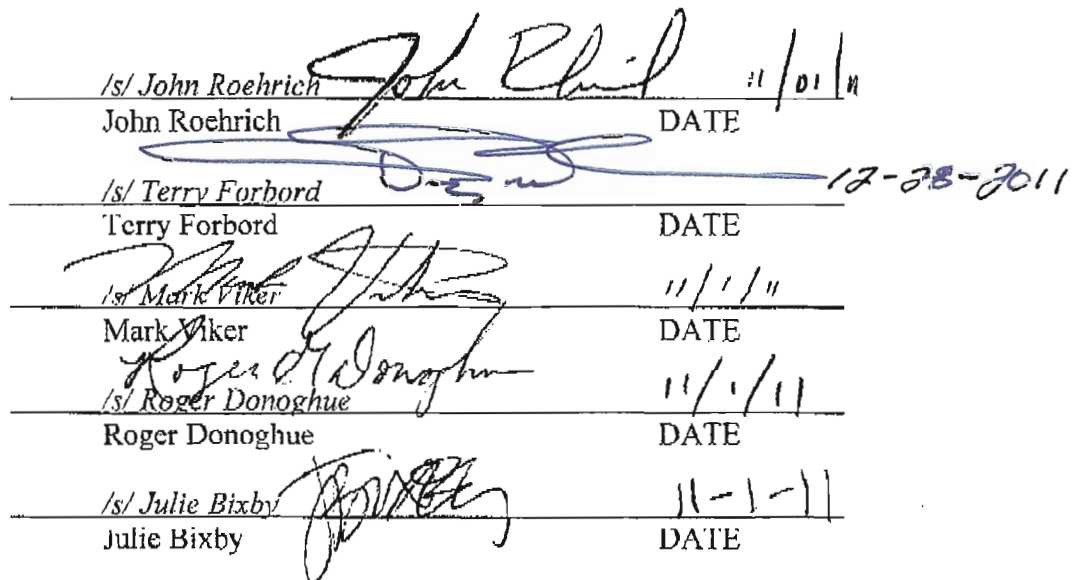 /s/ John Roehrich John 11/01/11
John Roehrich DATE
/s/ Terry Forbord 12-28-2011
Terry Forbord DATE
/s/ Mark Viker Mark Viker 11/1/11
Mark Viker DATE
Roger Donoghue
/s/ Roger Donoghue 11/1/11
Roger Donoghue DATE
/s/ Julie Bixby 11-1-11
Julie Bixby DATE